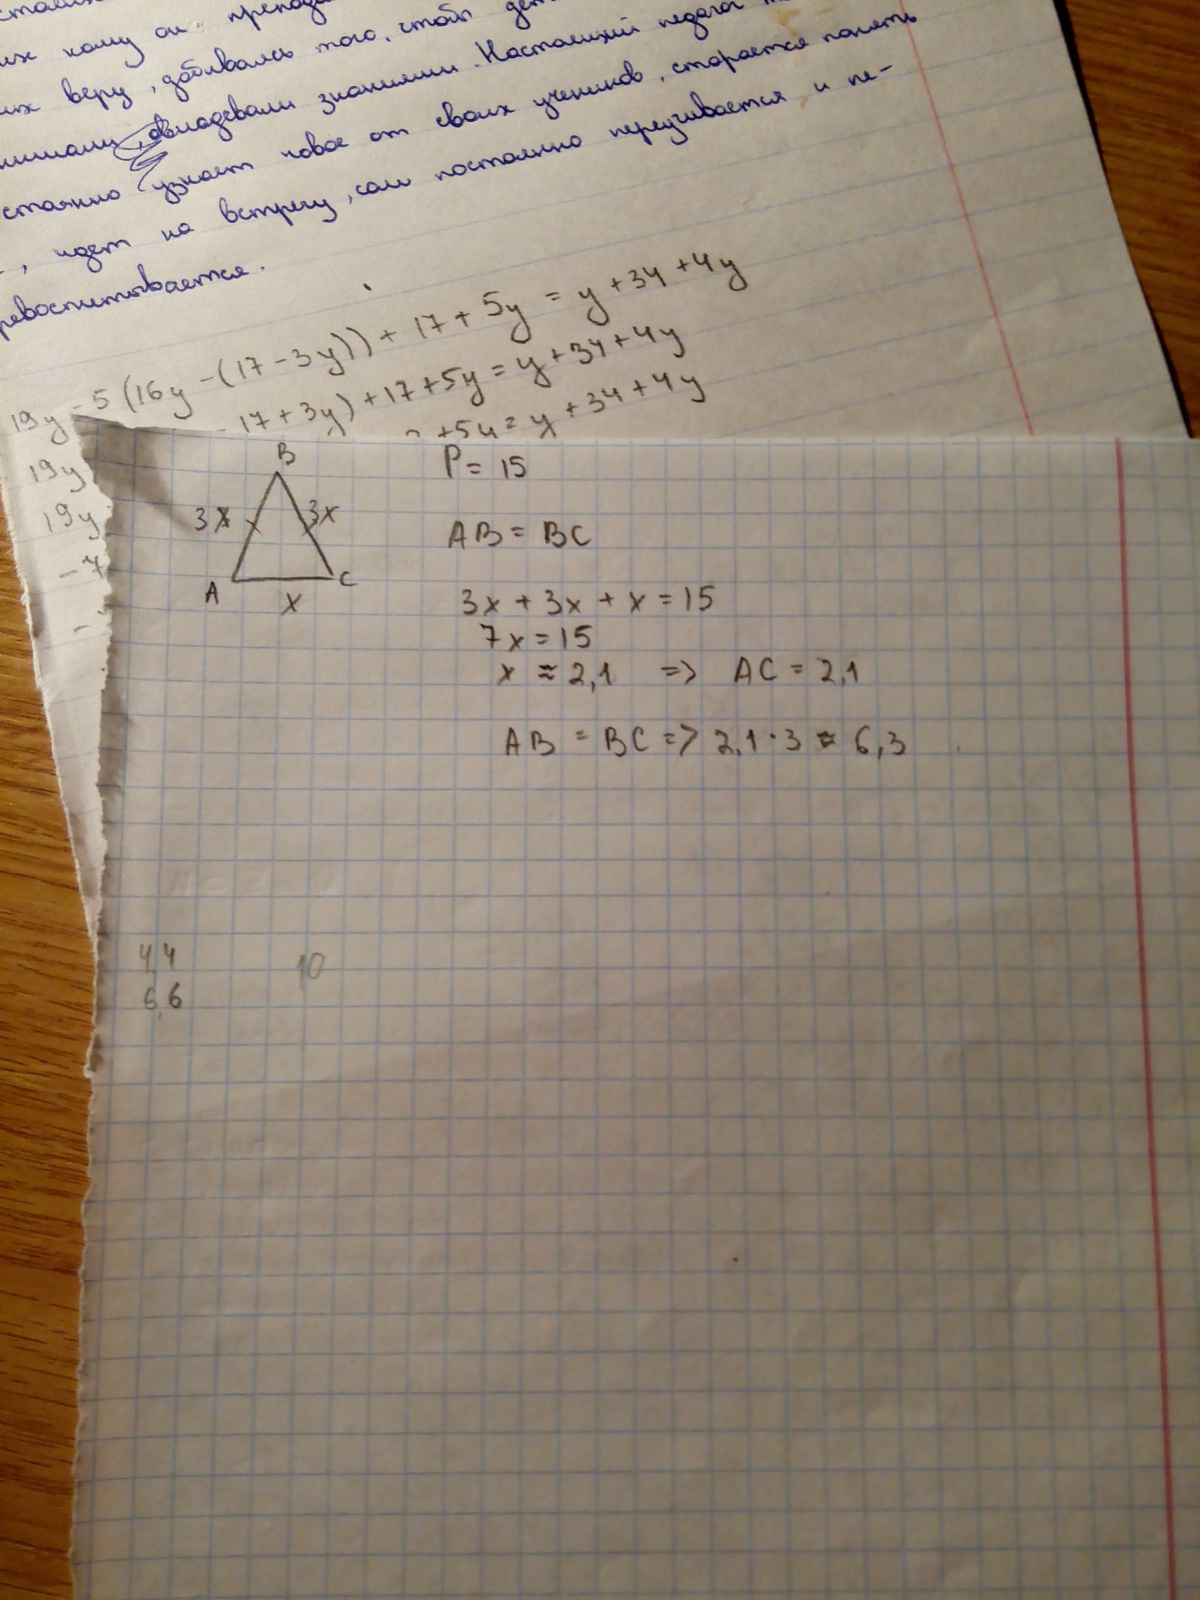 их кому он препода
их веру, добивались того, чтоб дет
овладевали знаниями. Настоящий педагог
стоянно узнает новое от своих учеников, старается понять
, идет на встречу, сам постоянно переучивается и пе-
ревоспитывается.
19y - 5(16y - (17 - 3y)) + 17 + 5y = y + 34 + 4y
19y - 17 + 3y) + 17 + 5y = y + 34 + 4y
19y + 5y = y + 34 + 4y
- 7
-
B
3x 3x
A C
x
P = 15
AB = BC
3x + 3x + x = 15
7x = 15
x ≈ 2,1 => AC = 2,1
AB = BC => 2,1 · 3 ≈ 6,3
4,4 10
6,6